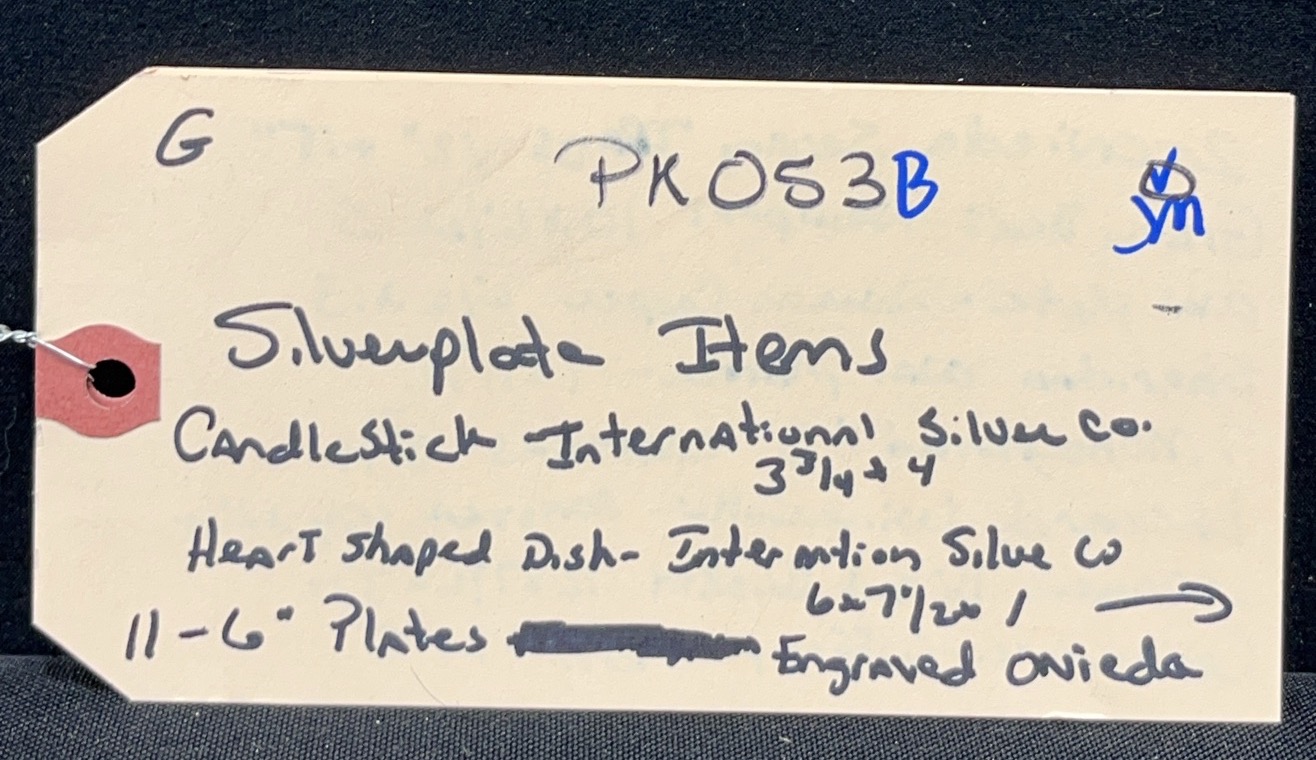 G
PK053B
Silverplate Items
Candlestick International Silver Co.
3 3/4 x 4
Heart Shaped Dish- Internation Silve Co
6x7 1/2 x 1 →
11-6" Plates Engraved Onieda